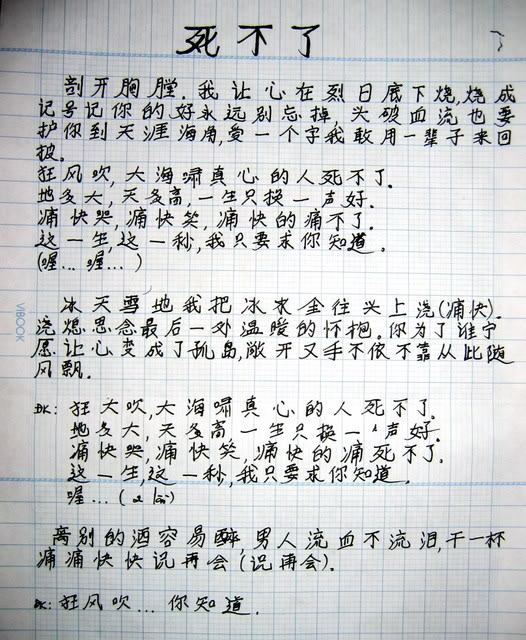 死不了
剖开胸膛.我让心在烈日底下烧,烧成
记号记你的好永远别忘掉,头破血流也要
护你到天涯海角,爱一个字我敢用一辈子来回
报.
狂风吹,大海啸真心的人死不了.
地多大,天多高,一生只换一声好.
痛快哭,痛快笑,痛快的痛不了.
这一生,这一秒,我只要求你知道.
(喔... 喔... )
冰天雪地我把冰水全往头上浇(痛快).
浇熄思念最后一处温暖的怀抱.你为了谁宁
愿让心变成了孤岛,敞开双手不依不靠从此随
风飘.
DK: 狂大吹,大海啸真心的人死不了.
地多大,天多高一生只换一声好.
痛快哭,痛快笑,痛快的痛死不了.
这一生,这一秒,我只要求你知道.
喔...(2 lần)
离别的酒容易醉,男人流血不流泪,干一杯
痛痛快快说再会(说再会).
ĐK: 狂风吹... 你知道.
VIBOOK